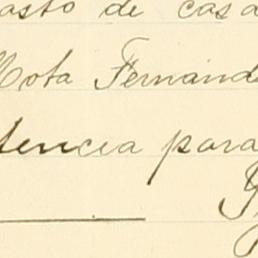 asto de casa
Mota Fernánde
tencia para
Y